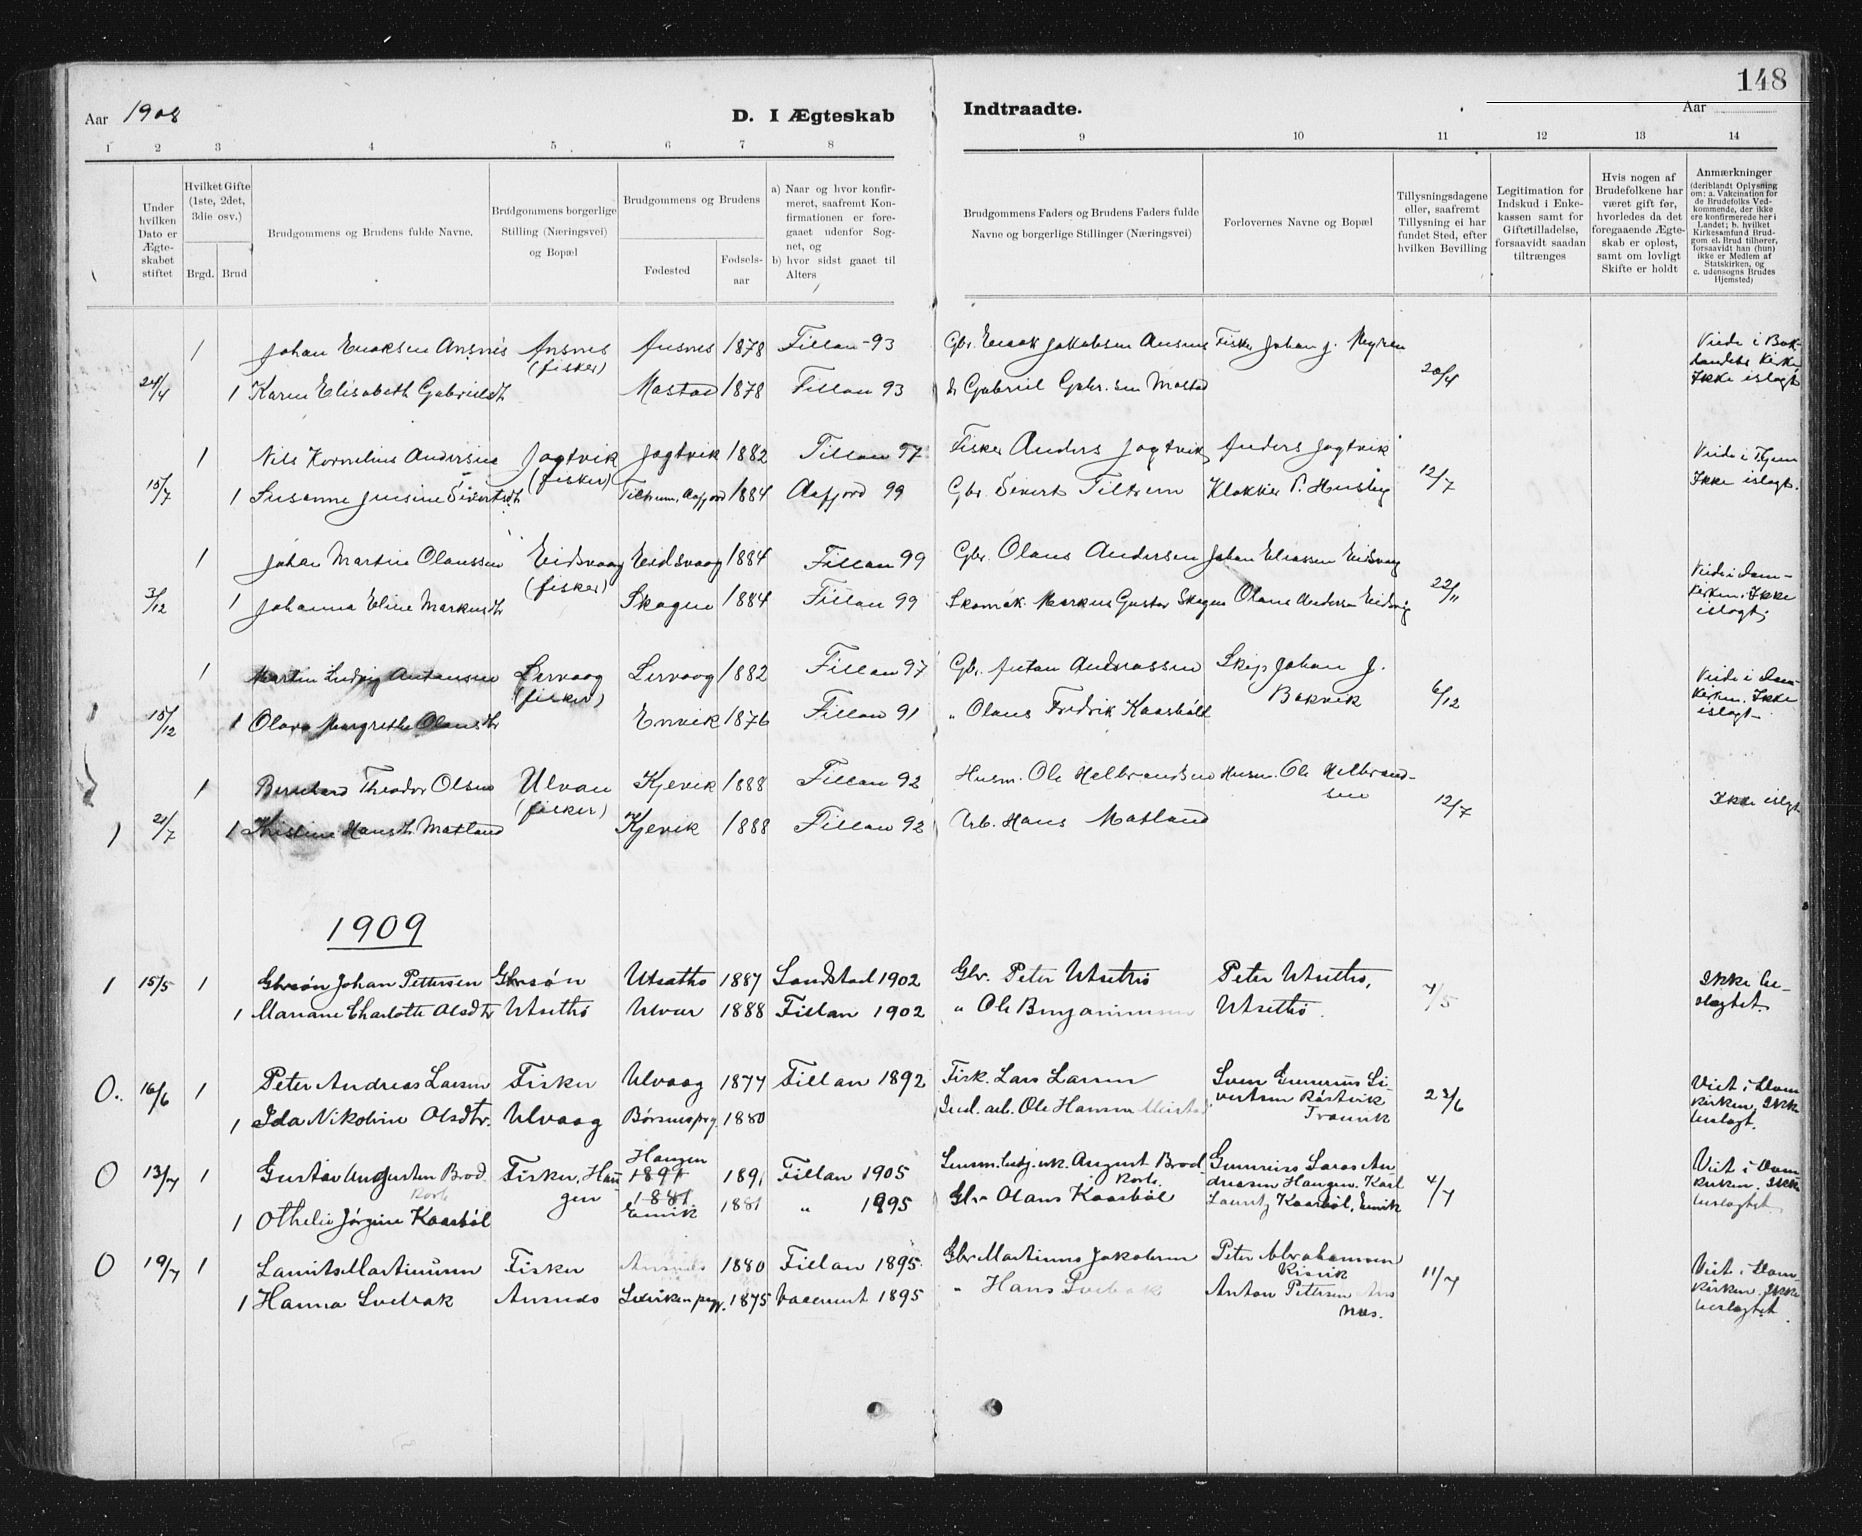 148
Aar 1908 D. I Ægteskab Indtraadte. Aar
1 2 3 4 5 6 7 8 9 10 11 12 13 14
Under hvilken Dato er Ægteskabet stiftet
Hvilket Gifte (1ste, 2det, 3die osv.)
Brgd. Brud
Brudgommens og Brudens fulde Navne.
Brudgommens borgerlige Stilling (Næringsvei) og Bopæl
Brudgommens og Brudens
Fødested
Fødselsaar
a) Naar og hvor konfirmeret, saafremt Konfirmationen er foregaaet udenfor Sognet, og
b) hvor sidst gaaet til Alters
Brudgommens Faders og Brudens Faders fulde Navne og borgerlige Stillinger (Næringsvei)
Forlovernes Navne og Bopæl
Tillysningsdagene eller, saafremt Tillysning ei har fundet Sted, efter hvilken Bevilling
Legitimation for Indskud i Enkekassen samt for Giftetilladelse, forsaavidt saadan tiltrænges
Hvis nogen af Brudefolkene har været gift før, hvorledes da det foregaaende Ægteskab er opløst, samt om lovligt Skifte er holdt
Anmærkninger
(deriblandt Oplysning om: a. Vakcination for de Brudefolks Vedkommende, der ikke ere konfirmerede her i Landet; b. hvilket Kirkesamfund Brudgom el. Brud tilhører, forsaavidt han (hun) ikke er Medlem af Statskirken, og c. udensogns Brudes Hjemsted)
1 Johan Enoksen Ansnes Ansnes Ansnes 1878 Fillan 93 Gbr. Enok Jakobsen Ansnes Fisker Johan J. Myren Viede i Bak-
(fisker) landets Kirke
24/4 1 Karen Elisabeth Gabrielsdt. Mastad 1878 Fillan 93 Gabriel Gabr.sen Mastad 20/4 Ikke islagt
1 Nils Kornelius Andersen Jøgtvik Jøgtvik 1882 Fillan 97 Fisker Anders Jøgtvik Anders Jøgtvik Viede i
(fisker)
15/7 1 Susanne Jensine Sivertsdt. Tiltrem, Aafjord 1884 Aafjord 99 Gbr. Sivert Tiltrem Klokker P. 12/7 Ikke islagt.
1 Johan Martin Olaussen Eidsvaag Eidsvaag 1884 Fillan 99 Gbr. Olaus Andersen Johan Eliassen Eidsvaag Viede i Dom-
(fisker) kirken. Ikke
3/12 1 Johanna Eline Markusdt. Skagen 1884 Fillan 99 Skomak. Markus Gustav Skagen Olaus Andersen Eidsvig 22/11 islagt.
1 Martin Ludvig Antonsen Lervaag Lervaag 1882 Fillan 97 Gbr. Anton Andreassen Skip. Johan J. Viede i Dom-
(fisker) Bakvik kirken. Ikke
15/12 1 Olava Margrethe Olausdt. Envik 1876 Fillan 91 " Olaus Fredrik Kaasbøll 6/12 islagt
1 Bernhard Theodor Olsen Ulvan Kjevik 1888 Fillan 92 Husm. Ole Helbrandsen Husm. Ole Helbrand-
(fisker) sen Ikke islagt
1 21/7 1 Kristine Hansdt. Matland Kjevik 1888 Fillan 92 Arb. Hans Matland 12/7
1909
1 15/5 1 Gbrsøn Johan Pettersen Gbrsøn Utsætho 1887 Sandstad 1902 Gbr. Peter Utsethø Peter Utsethø, Ikke be-
1 Mariane Charlotte Olsdtr Utsethø Ulvan 1888 Fillan 1902 " Ole Benjaminsen Utsethø. 4/5 slægtet.
O. 16/6 1 Peter Andreas Larsen Fisker Ulvaag 1877 Fillan 1892 Fisk. Lars Larsen Sven Gunerius Si- Viet i Dom
vertsen Røstvik 2 3/6 kirken. Ikke
1 Ida Nikoline Olsdtr. Ulvaag Børsenspgj. 1880 Ind. arb. Ole Hansen Framvik beslægt.
O 13/7 1 Gustav Augustin Brod Fisker, Hau Haugen 1891 1891 Fillan 1905 August Brod Gunerius Larss An- Viet i Dom
korb gen korb. dreasen Haugen. Karl 4/7 kirken. Ikke
1 Othelie Jørgine Kaasbøl 1881 Envik 1881 " 1895 Gbr Olaus Kaasbøl Lauritz Kaasbøl, Envik beslægtet.
O 19/7 1 Laurits Martinusen Fisker Ansnes 1880 Fillan 1895 Gbr Martinus Jakobsen Peter Abrahamsen Viet i Dom-
Risvik 11/7 kirken. Ikke
1 Hanna Svebak Ansnes 1875 1895 " Hans Svebak Anton Pettersen Ans beslægtet.
næs.